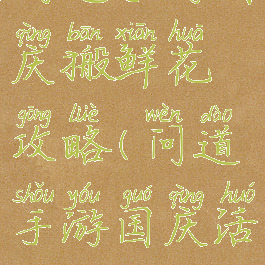 qìng bān xiān huā
庆搬鲜花
gōng lüè wèn dào
攻略(问道
shǒu yóu guó qìng huó
手游国庆活